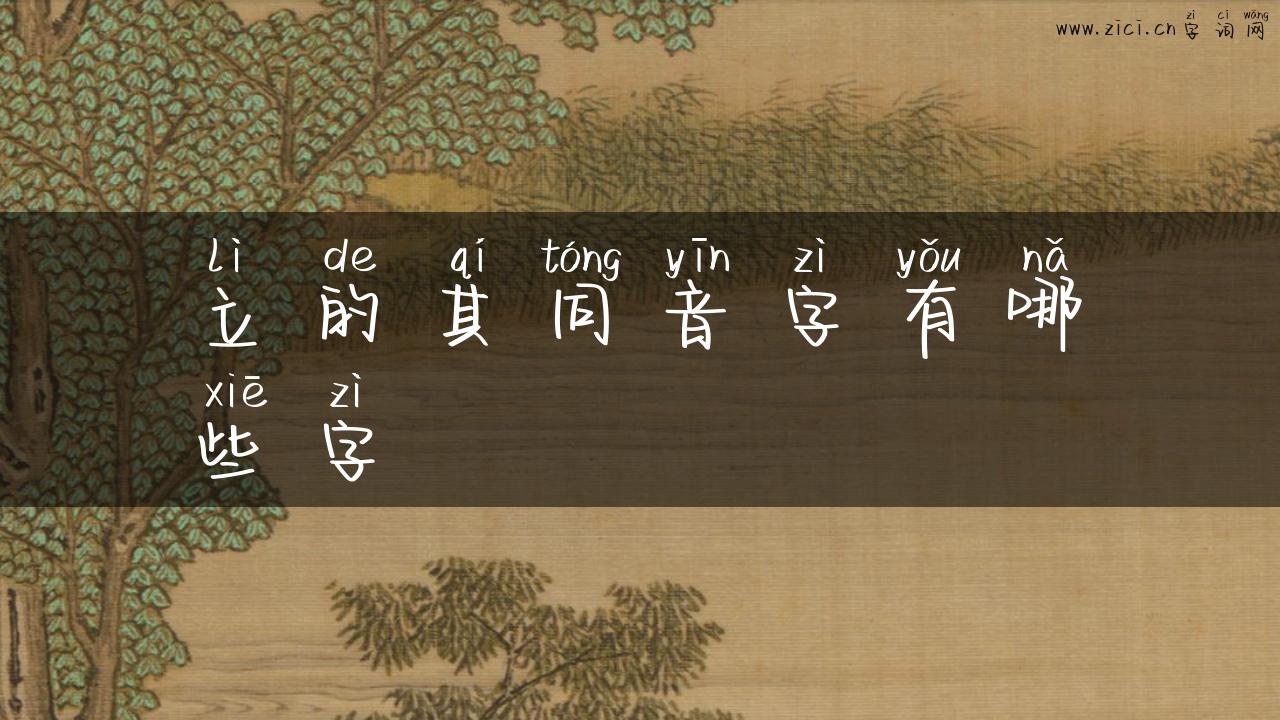 zì cí wǎng
www.zici.cn字词网
lì de qí tóng yīn zì yǒu nǎ
立的其同音字有哪
xiē zì
些字